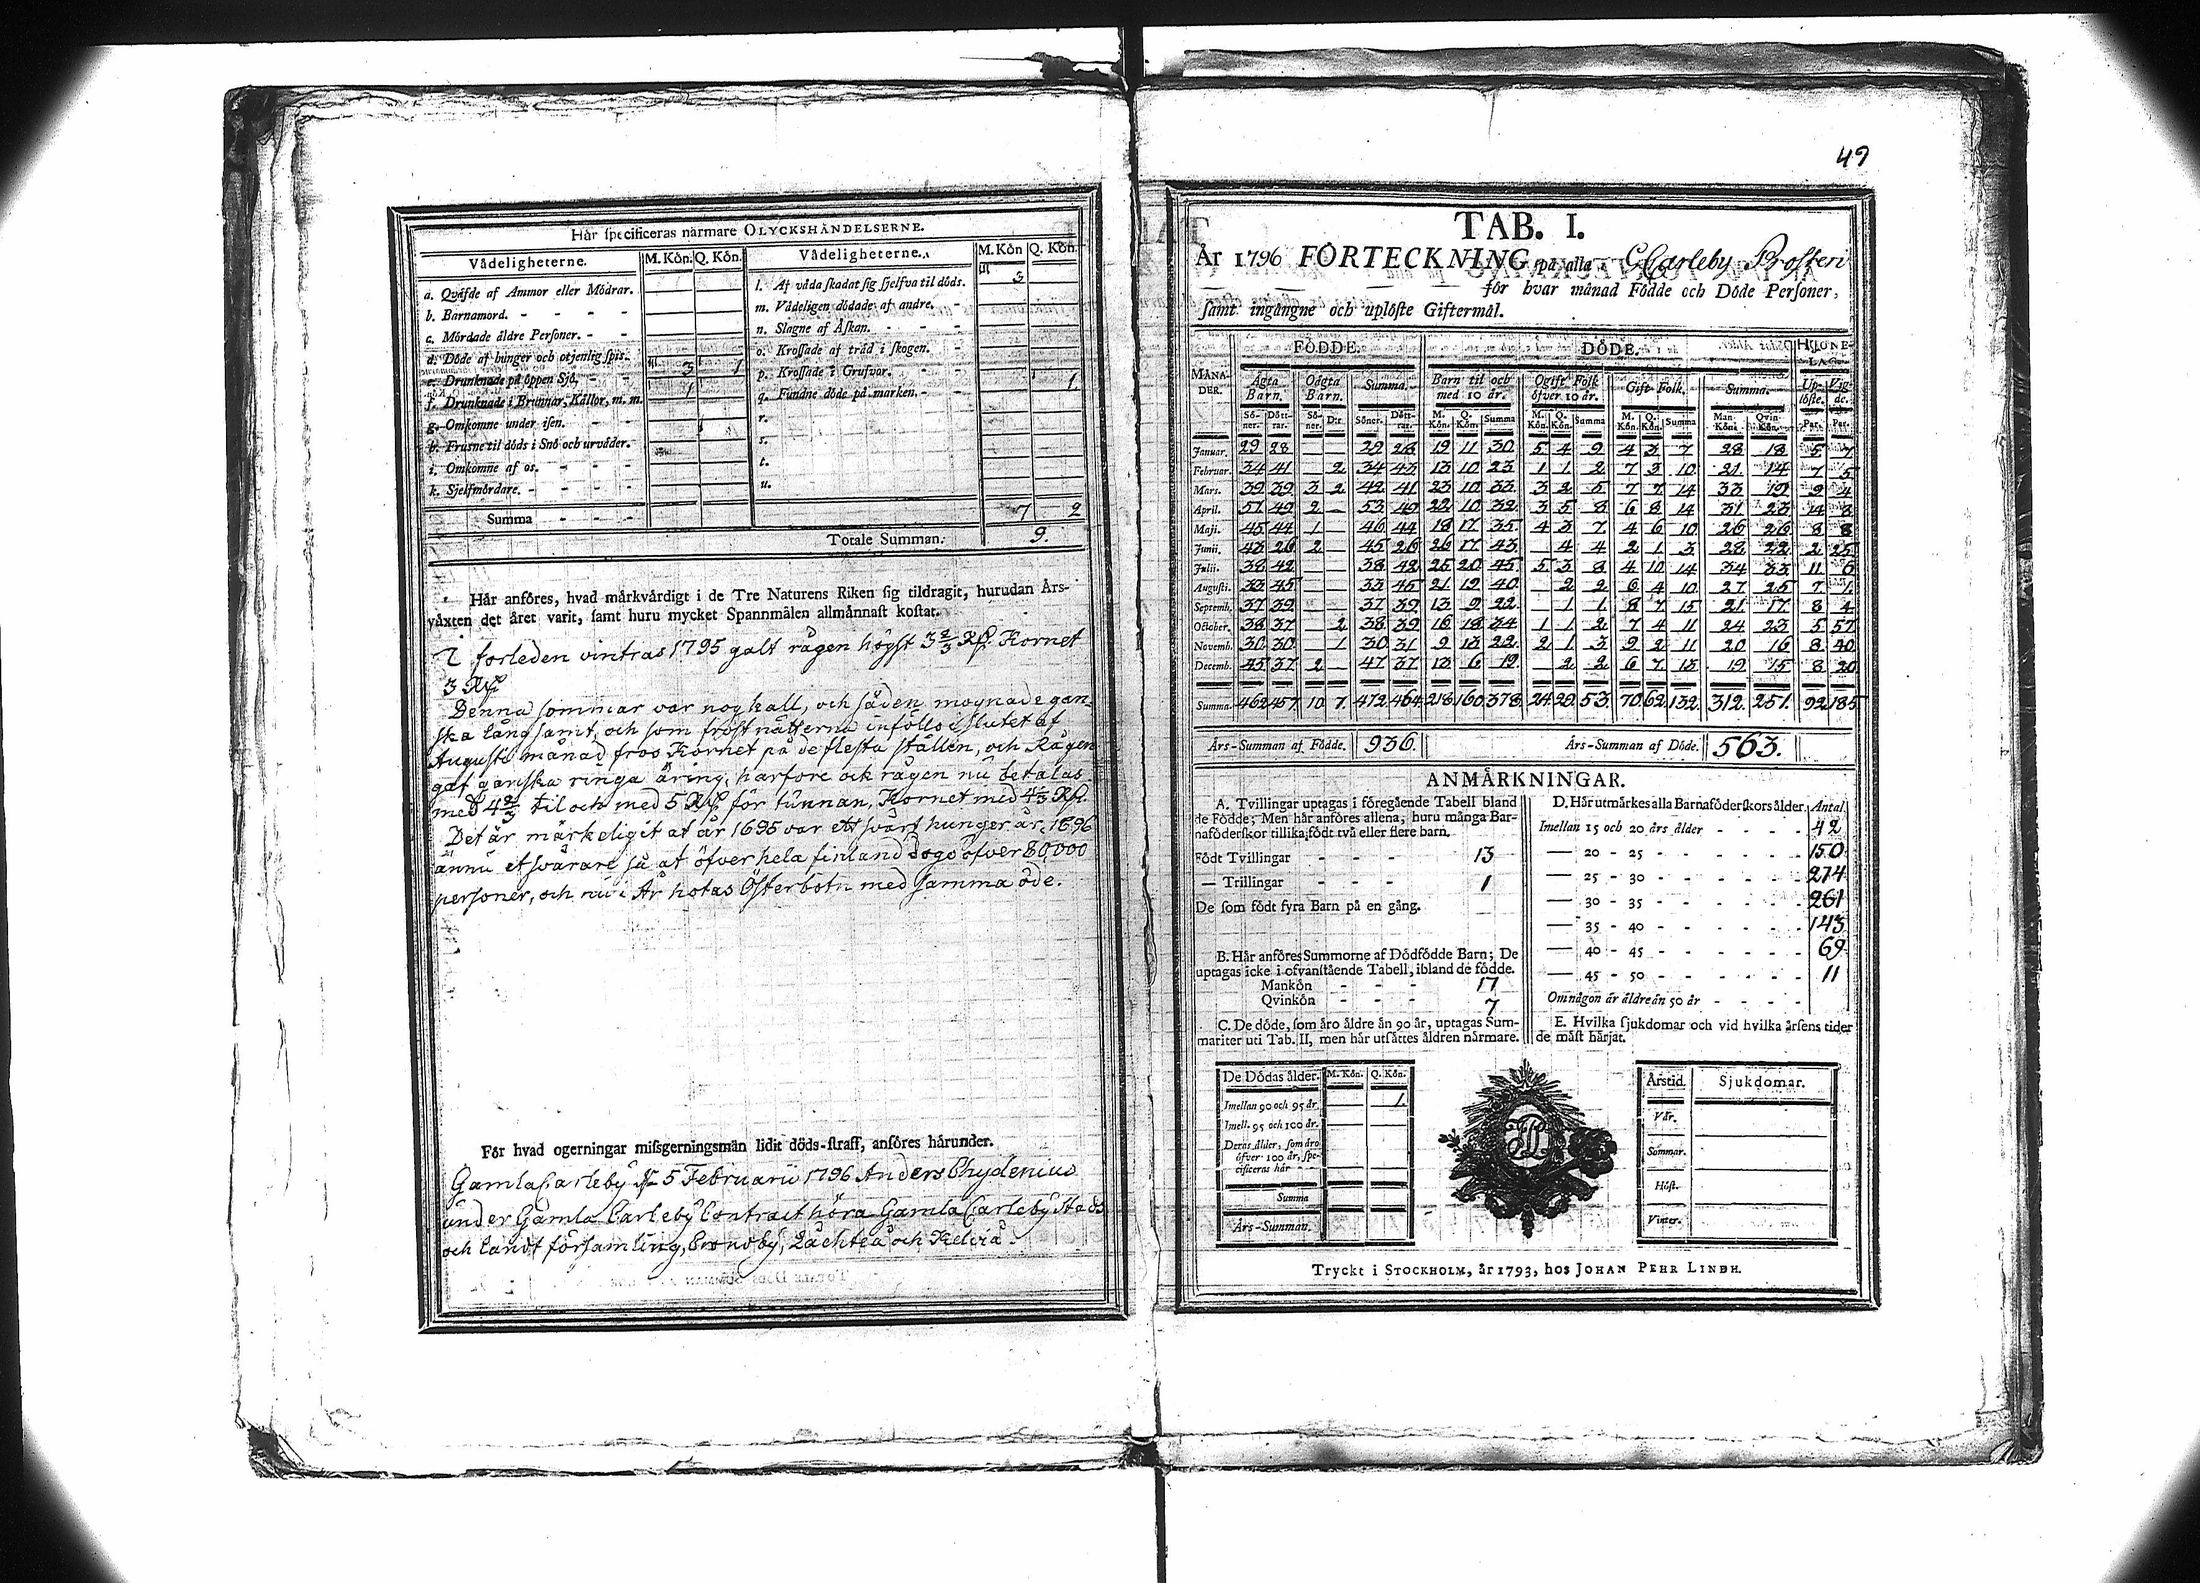 Hår specificeras nårmare OLYCKSHÅNDELSERNE.
Vådeligheterne. M. Kön. Q. Kön. Vådeligheterne. M. Kön Q. Kön.
a. Qväfde af Ammor eller Mödrar.
b. Barnamord. - - - -
c. Mördade äldre Personer. - -
d. Döde af hunger och otjenlig spis.
e. Drunknade på öppen Sjö, - - 3 1
f. Drunknade i Brunnar, Källor, m. m. 1
g. Omkomne under isen. - - -
h. Frusne til döds i Snö och urväder.
i. Omkomne af os. - - - -
k. Sjelfmördare. - - - -
l. Af våda skadat sig sjelfva til döds. 3
m. Vådeligen dödade af andre. -
n. Slagne af Åskan. - - -
o. Krossade af träd i skogen. -
p. Krossade i Grufvor. - - -
q. Fundne döde på marken. - - 1.
r.
s.
t.
u.
Summa - - - 7 2
Totale Summan. 9.
Hår anföres, hvad mårkvårdigt i de Tre Naturens Riken sig tildragit, hurudan Års-
våxten det året varit, samt huru mycket Spannmålen allmånnast kostat.
I forleden vintras 1795 galt rågen högst 3 2/3 Rd Kornet
3 Rd
Denna sommar var nog kall, och säden mognade gan
ska långsamt, och som frostnätterna infölls i slutet af
Augusti månad frös Kornet på de flesta ställen, och Rågen
gaf ganska ringa äring, harfore ock rågen nu betalas
med 4 2/3 til och med 5 Rd för tunnan, Kornet med 4 1/3 Rd.
Det är märkeligit at år 1695 var ett svårt hunger år, 1696
ännu et svårare så at öfver hela finland dogo öfver 80,000
personer, och nu i År hotas Österbotn med samma öde.
För hvad ogerningar missgerningsmän lidit döds-straff, anföres hårunder.
Gamla Carleby d 5 Februarii 1796 Anders Chydenius
under Gamla Carleby Contract höra Gamla Carleby Stads
och landt församling, Cronoby, Lächteå och Kelviå.
49
TAB. I.
År 1796 FÖRTECKNING på alla G Carleby Prosteri
för hvar månad Födde och Döde Personer,
samt ingångne och uplöste Giftermål.
FÖDDE. DÖDE. HJONE-LAG.
MÅNADER. Ågta Barn. Oågta Barn. Summa. Barn til och med 10 år. Ogift Folk öfver 10 år. Gift Folk. Summa. Uplöste. Vigde.
Söner. Döttrar. Söner. D:r Söner. Döttrar. M. Kön. Q. Kön. Summa M. Kön. Q. Kön. Summa M. Kön. Q. Kön. Summa Man-Kön. Qvin-Kön. Par. Par.
Januar. 29 28 — — 29 28 19 11 30 5 4 9 4 3 7 28 18 5 7
Februar. 34 41 — 2 34 43 13 10 23 1 1 2 7 3 10 21 14 7 5
Mars. 39 39 3 2 42 41 23 10 33 3 2 5 7 7 14 33 19 9 4
April. 51 49 2 — 53 49 22 10 32 3 5 8 6 8 14 31 23 14 8
Maji. 45 44 1 — 46 44 18 17 35 4 3 7 4 6 10 26 26 8 8
Junii. 43 26 2 — 45 26 26 17 43 — 4 4 2 1 3 28 22 2 25
Julii. 38 42 — — 38 42 25 20 45 5 3 8 4 10 14 34 33 11 6
Augusti. 33 45 — — 33 45 21 19 40 — 2 2 6 4 10 27 25 7 1
Septemb. 37 39 — — 37 39 13 9 22 — 1 1 8 7 15 21 17 8 4
October. 38 37 — 2 38 39 16 18 34 1 1 2 7 4 11 24 23 5 57
Novemb. 30 30 — 1 30 31 9 13 22 2 1 3 9 2 11 20 16 8 40
Decemb. 45 37 2 — 47 37 13 6 19 — 2 2 6 7 13 19 15 8 20
Summa. 462 457 10 7. 472 464 218 160 378 24 29 53 70 62 132 312. 251. 92 185
Års-Summan af Födde. 936. Års-Summan af Döde. 563.
ANMÅRKNINGAR.
A. Tvillingar uptagas i föregående Tabell bland
de Födde; Men hår anföres allena, huru många Bar-
naföderskor tillika födt två eller flere barn.
Födt Tvillingar - - - 13
— Trillingar - - - 1
De som födt fyra Barn på en gång.
B. Hår anföres Summorne af Dödfödde Barn; De
uptagas icke i ofvanstående Tabell, ibland de födde.
Mankön - - - 17
Qvinkön - - - 7
C. De döde, som åro åldre ån 90 år, uptagas Sum-
mariter uti Tab. II, men hår utsåttes åldren nårmare.
D. Hår utmårkes alla Barnaföderskors ålder. Antal.
Imellan 15 och 20 års ålder - - - - 42
— 20 - 25 - - - - 150
— 25 - 30 - - - - 274
— 30 - 35 - - - - 261
— 35 - 40 - - - - 143
— 40 - 45 - - - - 69
— 45 - 50 - - - - 11
Om någon är äldre än 50 år - - - -
E. Hvilka sjukdomar och vid hvilka årsens tider
de måst hårjat.
De Dödas ålder. M. Kön. Q. Kön.
Imellan 90 och 95 år. 1.
Imell. 95 och 100 år.
Deras ålder, som äro
öfver 100 år, spe-
cificeras här - -
Summa
Års-Summan.
Årstid. Sjukdomar.
Vår.
Sommar.
Höst.
Vinter.
Tryckt i STOCKHOLM, år 1793, hos JOHAN PEHR LINDH.